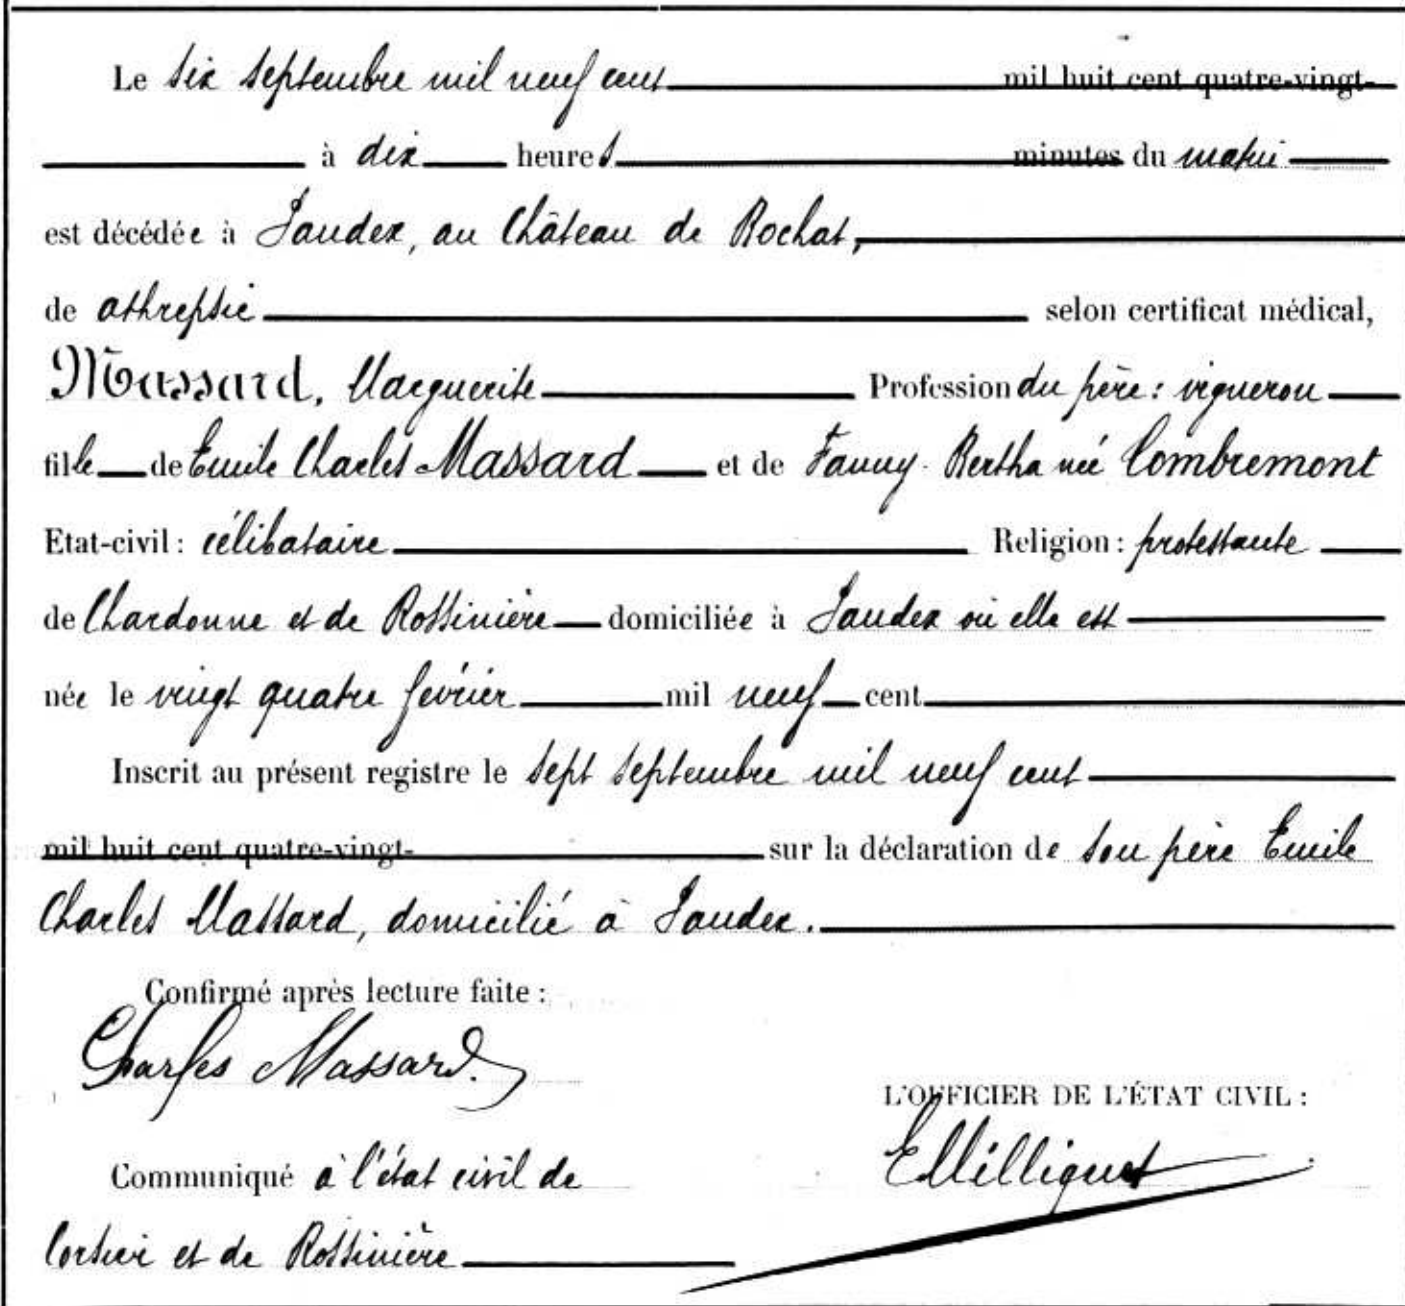 Le six septembre mil neuf cent mil huit cent quatre-vingt-
à dix heures minutes du matin
est décédée à Jaudex, au Château de Rochat,
de athrepsie selon certificat médical,
Massard, Marguerite Profession du père : vigneron
fille de Emile Charles Massard et de Fanny-Bertha née Combremont
Etat-civil : célibataire Religion : protestante
de Chardonne et de Rossinière domiciliée à Jaudex où elle est
née le vingt quatre février mil neuf cent
Inscrit au présent registre le sept septembre mil neuf cent
mil huit cent quatre-vingt- sur la déclaration de son père Emile
Charles Massard, domicilié à Jaudex.
Confirmé après lecture faite :
Charles Massard.
L'OFFICIER DE L'ÉTAT CIVIL :
EMilliquet
Communiqué à l'état civil de
Corsier et de Rossinière